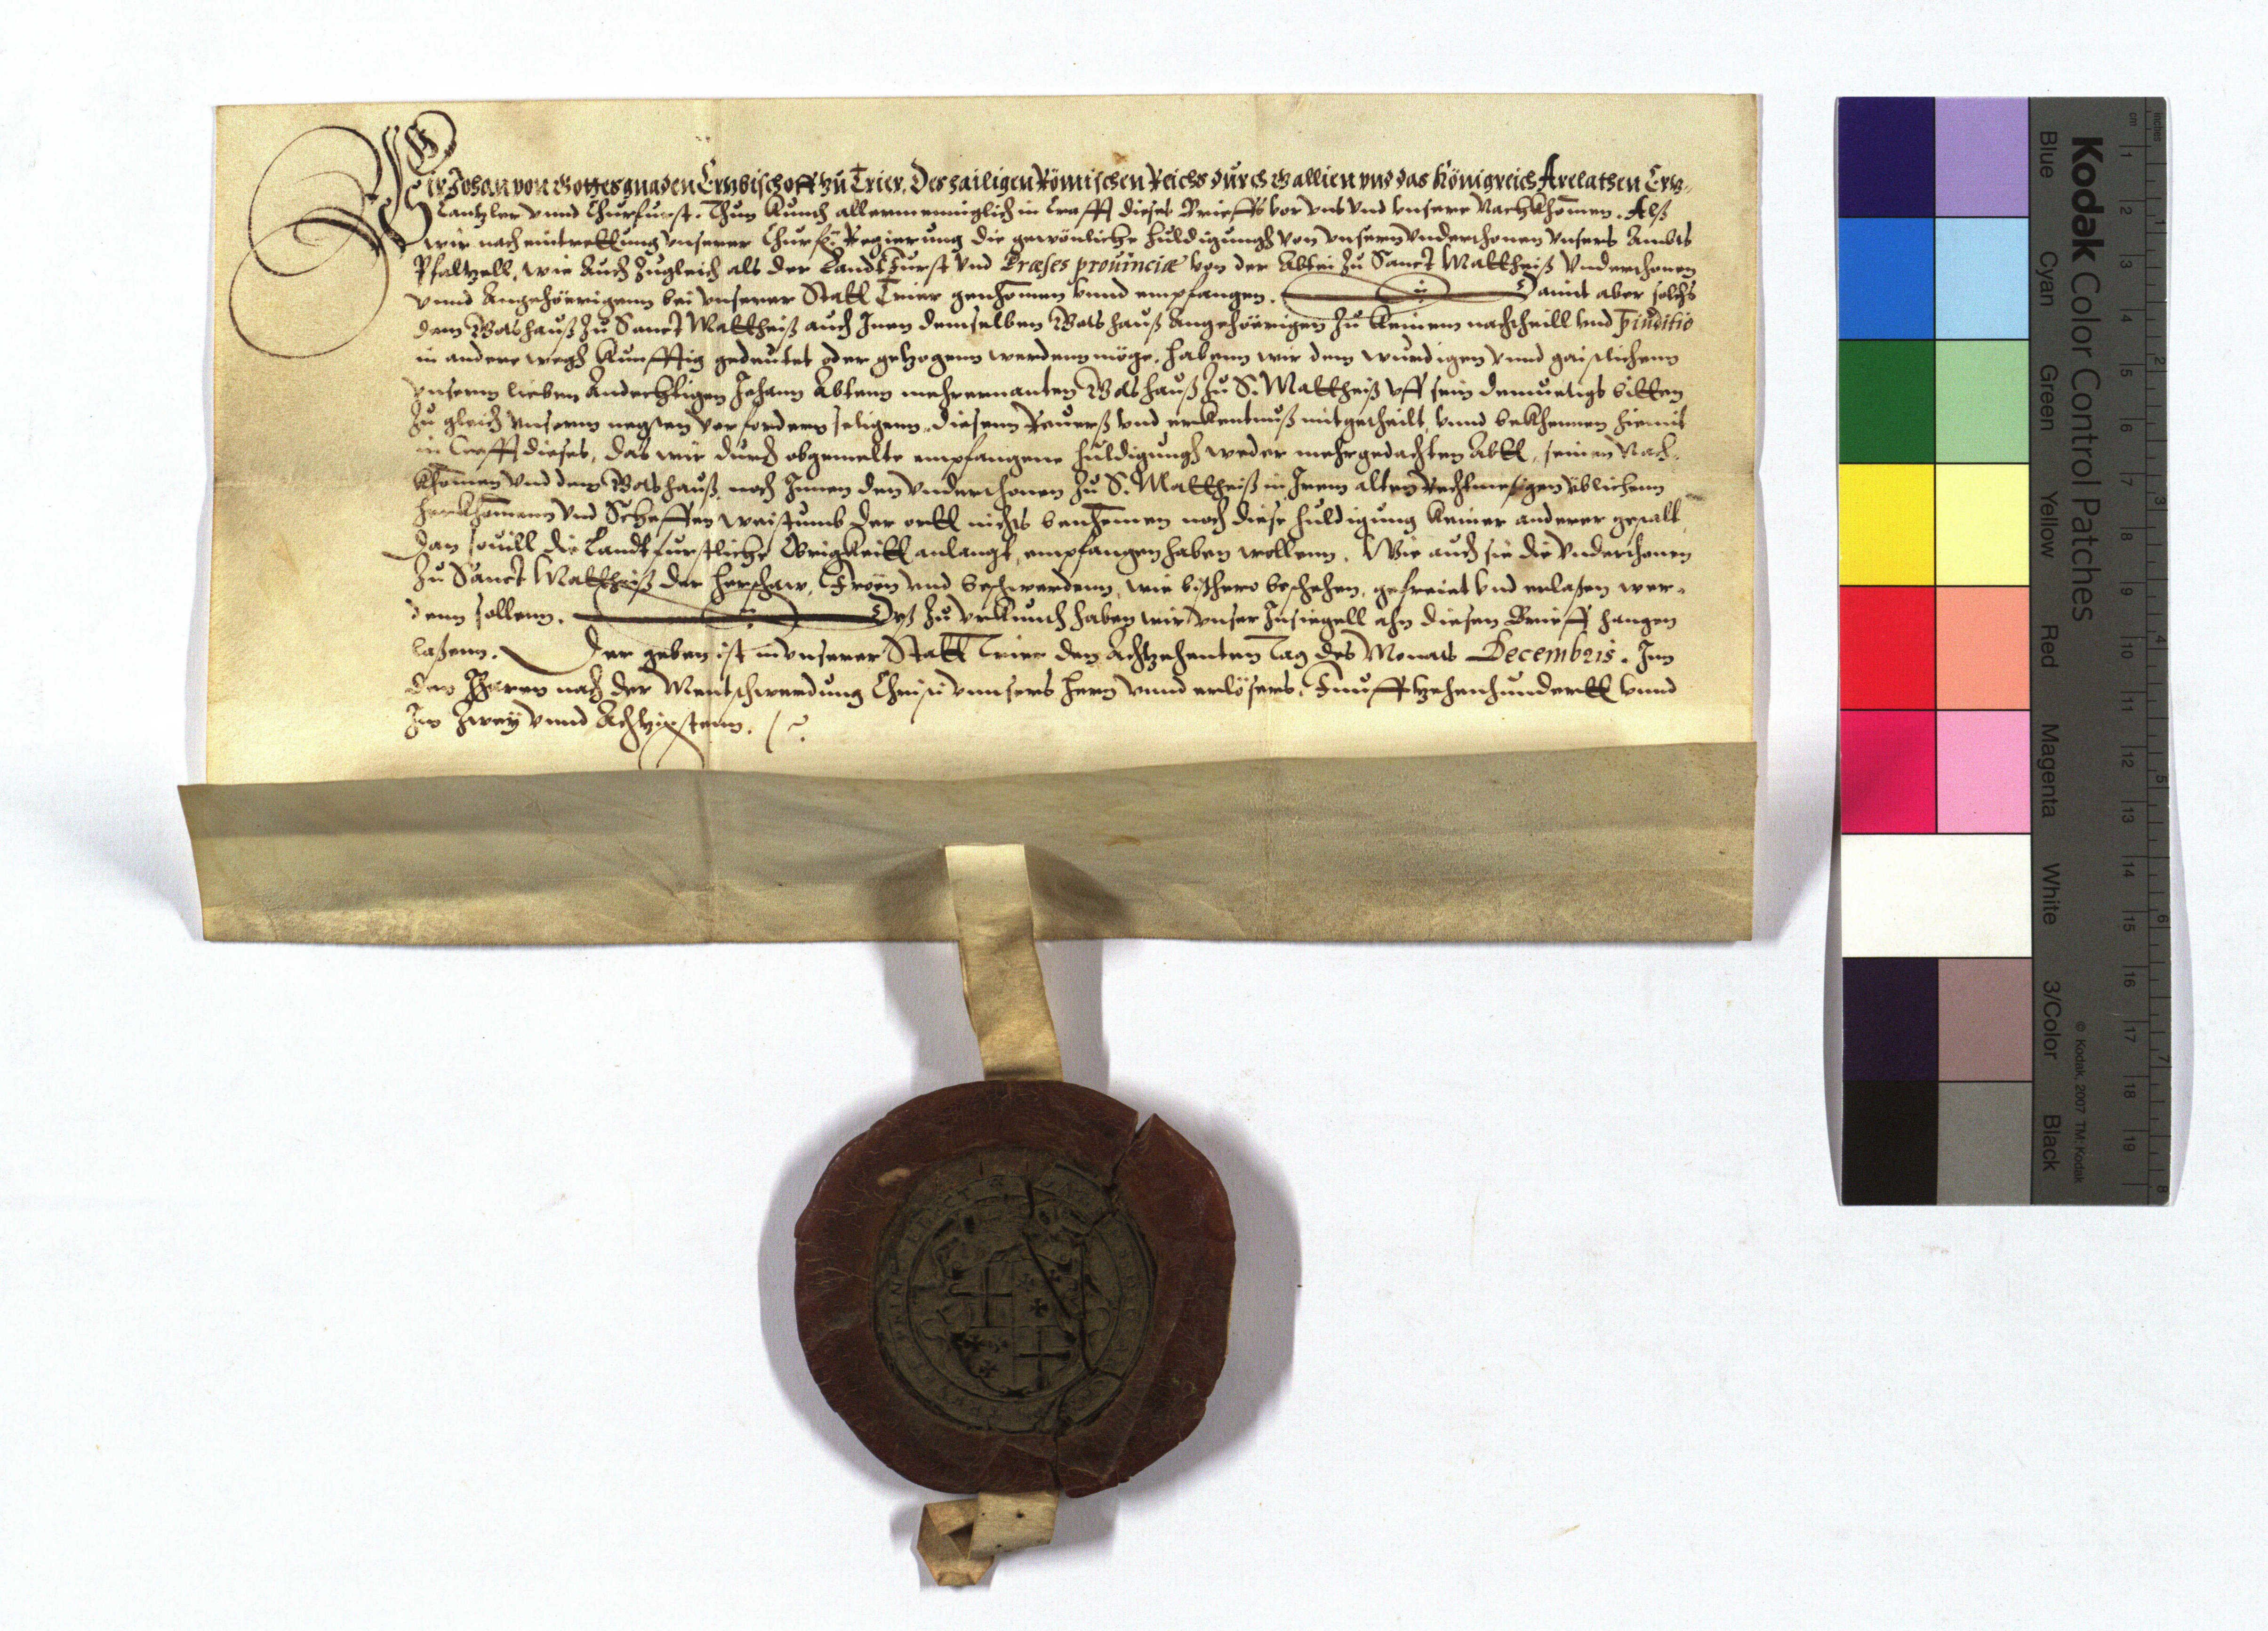 Wir Johan von Gottes gnaden Ertzbischoff zu Trier, Des hailigen Römischen Reichs durch Gallien vnd das Königreich Arelathen Ertz-
Cantzler vnnd Churfurst. Thun kundh allermenniglich in Crafft dieses Brieffs vor vns vnd vnsere Nachkhomen. Alß
wir nach eintrettung vnserer Churfl: Regierung die gewönliche huldigungh von vnsern vnderthonen vnsers Ambts
Pfaltzell, wie auch zugleich als der Landtfurst vnd Præses prouinciæ von der Abtei zu Sanct Mattheiß vnderthonen
vnnd Angehöerigenn bei vnserer Statt Trier genhomen vnnd empfangen. Damit aber solchs
dem Gotshauß zu Sanct Mattheiß auch Inen demselben Gotshauß Angehöerigen zu keinem nachtheill vnd
in andere wegh kunfftig gedeutet oder gezogenn werdenn möge, habenn wir dem wurdigen vnnd gaistlichenn
vnserm lieben Andechtigen Johann Abtenn mehrernanten Gotshauß zu S. Mattheiß vff sein demuetigs bitten
zu gleich vnserm negsten vorfordern seligenn, diesenn Reuerß vnd erkentnuß mitgetheilt, vnnd bekhennen hiemit
in Crafft dieses, das wir durch obgemelte empfangene huldigungh weder mehrgedachten Abtt, seinen Nach-
khomen vnd dem Gotshauß, noch Innen den vnderthonen zu S. Mattheiß in Irem alten rechtmesigen üblichenn
herkhomenn vnd Scheffen weistumb der ortt nichts benhomen noch diese huldigung keiner anderer gestalt,
Dan souill die Landtfurstliche Obrigkeitt anlangt, empfangen haben wollenn. Wie auch sie die vnderthonen
zu Sanct Mattheiß der herschaw, Froën vnd beschwerdenn, wie bißhero beschehen, gefreiet vnd erlaßen wer-
denn sollenn. Deß zu vrkundh haben wir vnser Insiegell ahn diesen Brieff hangen
laßenn. Der geben ist in vnserer Statt Trier den Achtzehenten Tag des Monats Decembris. Im
den Jharen nach der Mentschwerdung Christi vnnsers hern vnnd erlösers, Funfftzehenhundertt vnnd
Im Zwey vnnd Achtzigstenn.
Kodak Color Control Patches
Blue Cyan Green Yellow Red Magenta White 3/Color Black
© Kodak, 2007 TM: Kodak
inches 1 2 3 4 5 6 7 8
cm 1 2 3 4 5 6 7 8 9 10 11 12 13 14 15 16 17 18 19